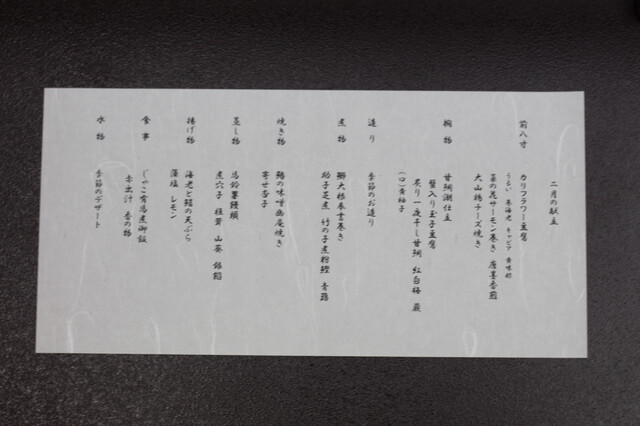 二月の献立
前八寸
カリフラワー豆腐
うるい 車海老 キャビア 黄味酢
菜の花サーモン巻き 唐墨香煎
大山椿チーズ焼き
椀物
甘鯛潮仕立
蟹入り玉子豆腐
炙り一夜干し甘鯛 紅白梅 蕨
(口)黄柚子
造り
季節のお造り
煮物
鰤大根巻き
助子芝煮 竹の子煮 粉鰹 青路
焼き物
鰆の味噌幽庵焼き
寄せ杏子
蒸し物
馬鈴薯饅頭
煮穴子 椎茸 山葵 銀餡
揚げ物
海老と鱚の天ぷら
藻塩 レモン
食事
じゃこ有馬煮御飯
赤出汁 香の物
水物
季節のデザート